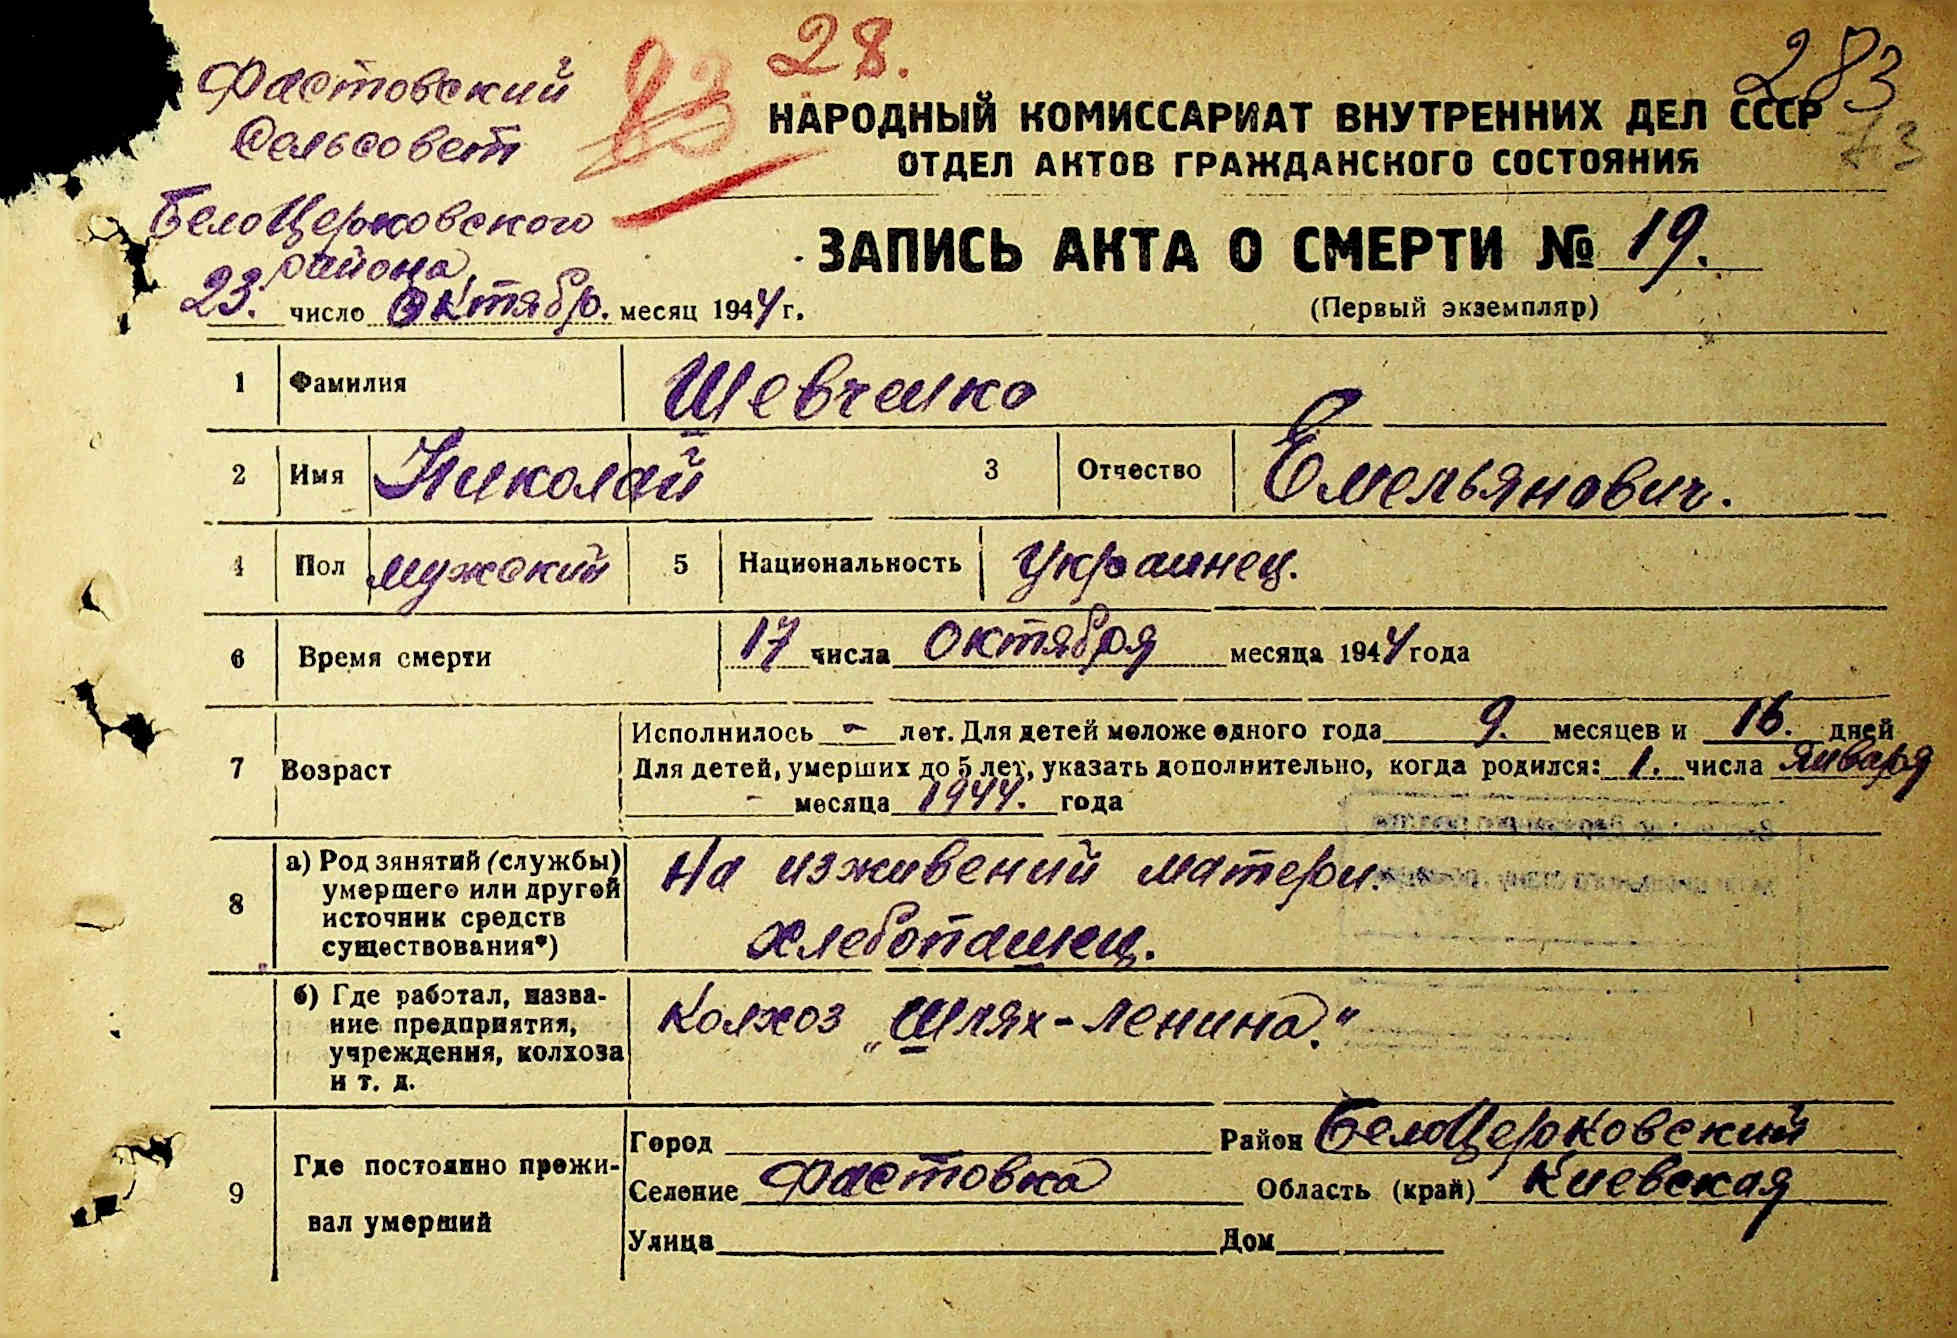 28.
283
73
Фастовский
сельсовет
23
БелоЦерковского
района
НАРОДНЫЙ КОМИССАРИАТ ВНУТРЕННИХ ДЕЛ СССР
ОТДЕЛ АКТОВ ГРАЖДАНСКОГО СОСТОЯНИЯ
ЗАПИСЬ АКТА О СМЕРТИ № 19.
23. число Октябр. месяц 1944 г.
(Первый экземпляр)
1 Фамилия Шевченко
2 Имя Николай 3 Отчество Емельянович.
4 Пол мужской 5 Национальность Украинец.
6 Время смерти 17 числа Октября месяца 1944 года
7 Возраст Исполнилось - лет. Для детей моложе одного года 9. месяцев и 16. дней
Для детей, умерших до 5 лет, указать дополнительно, когда родился: 1. числа Января
- месяца 1944. года
8 а) Род занятий (службы)
умершего или другой
источник средств
существования*)
На изживений матери.
хлебопашец.
б) Где работал, назва-
ние предприятия,
учреждения, колхоза
и т. д.
Колхоз „Шлях-Ленина."
9 Где постоянно прожи-
вал умерший
Город Район БелоЦерковский
Селение Фастовка Область (край) Киевская
Улица Дом